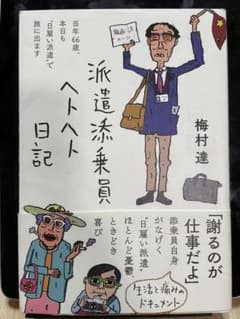 当年66歳、
本日も
"日雇い派遣"で
旅に出ます
派遣添乗員
ヘトヘト
日記
梅村達
「謝るのが
仕事だよ」
添乗員自身
がなげく
"日雇い派遣"
ほとんど憂鬱、
ときどき
喜び
生活と痛みの
ドキュメント